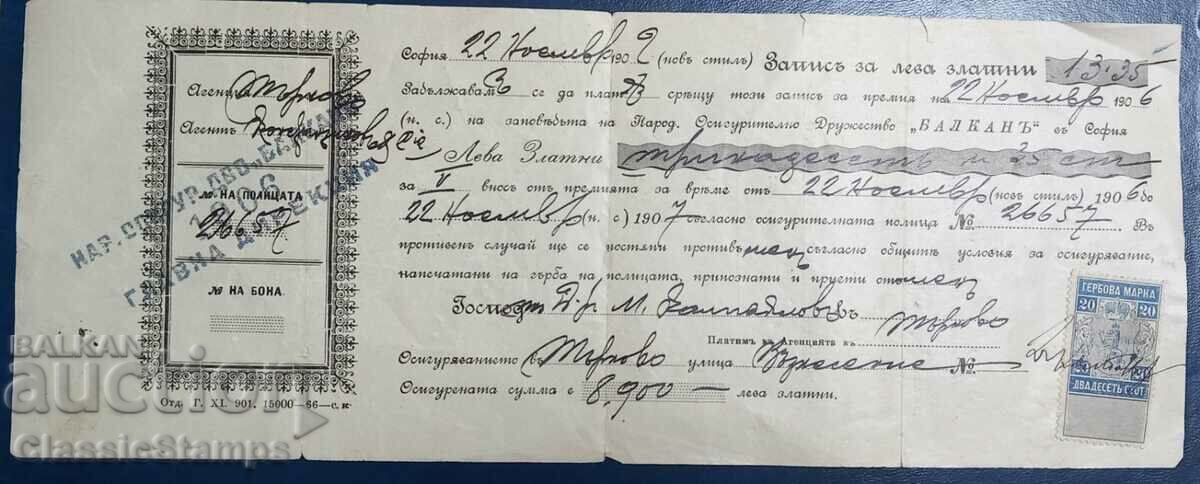 Агенц. Търново
Агентъ
№ НА ПОЛИЦАТА
26657
№ НА БОНА
НАР. ОСИГУР. Д-ВО „БАЛКАН"
1906
ГЛАВНА ДИРЕКЦИЯ
Отд. Г. XI. 901. 15000—66—с. к.
София 22 Ноемвр 1902 (новъ стилъ) Записъ за лева златни 13·35
Забължавам се да плат срѣщу този запис за премия на 22 Ноемвр 1906
(н. с.) на заповѣдьта на Народ. Осигурително Дружество „БАЛКАНЪ" въ София
Лева Златни тринадесетъ и 35 ст
за II вносъ отъ премията за врѣме отъ 22 Ноемвр (новъ стилъ) 1906 до
22 Ноемвр (н. с) 1907 съгласно осигурителната полица № 26657 Въ
противенъ случай ще се постѫпи противъ съгласно общитѣ условия за осигуряване,
напечатани на гърба на полицата, припознати и приети отъ
Господ Д-р М.
Платимъ въ Агенцията въ Търново
Осигуряванието въ Търново улица №
Осигурената сумма е 8,900 — лева златни.
ГЕРБОВА МАРКА
20 20
20 20
ДВАДЕСЕТЬ СТОТ
BALKAN
auction
ClassicStamps